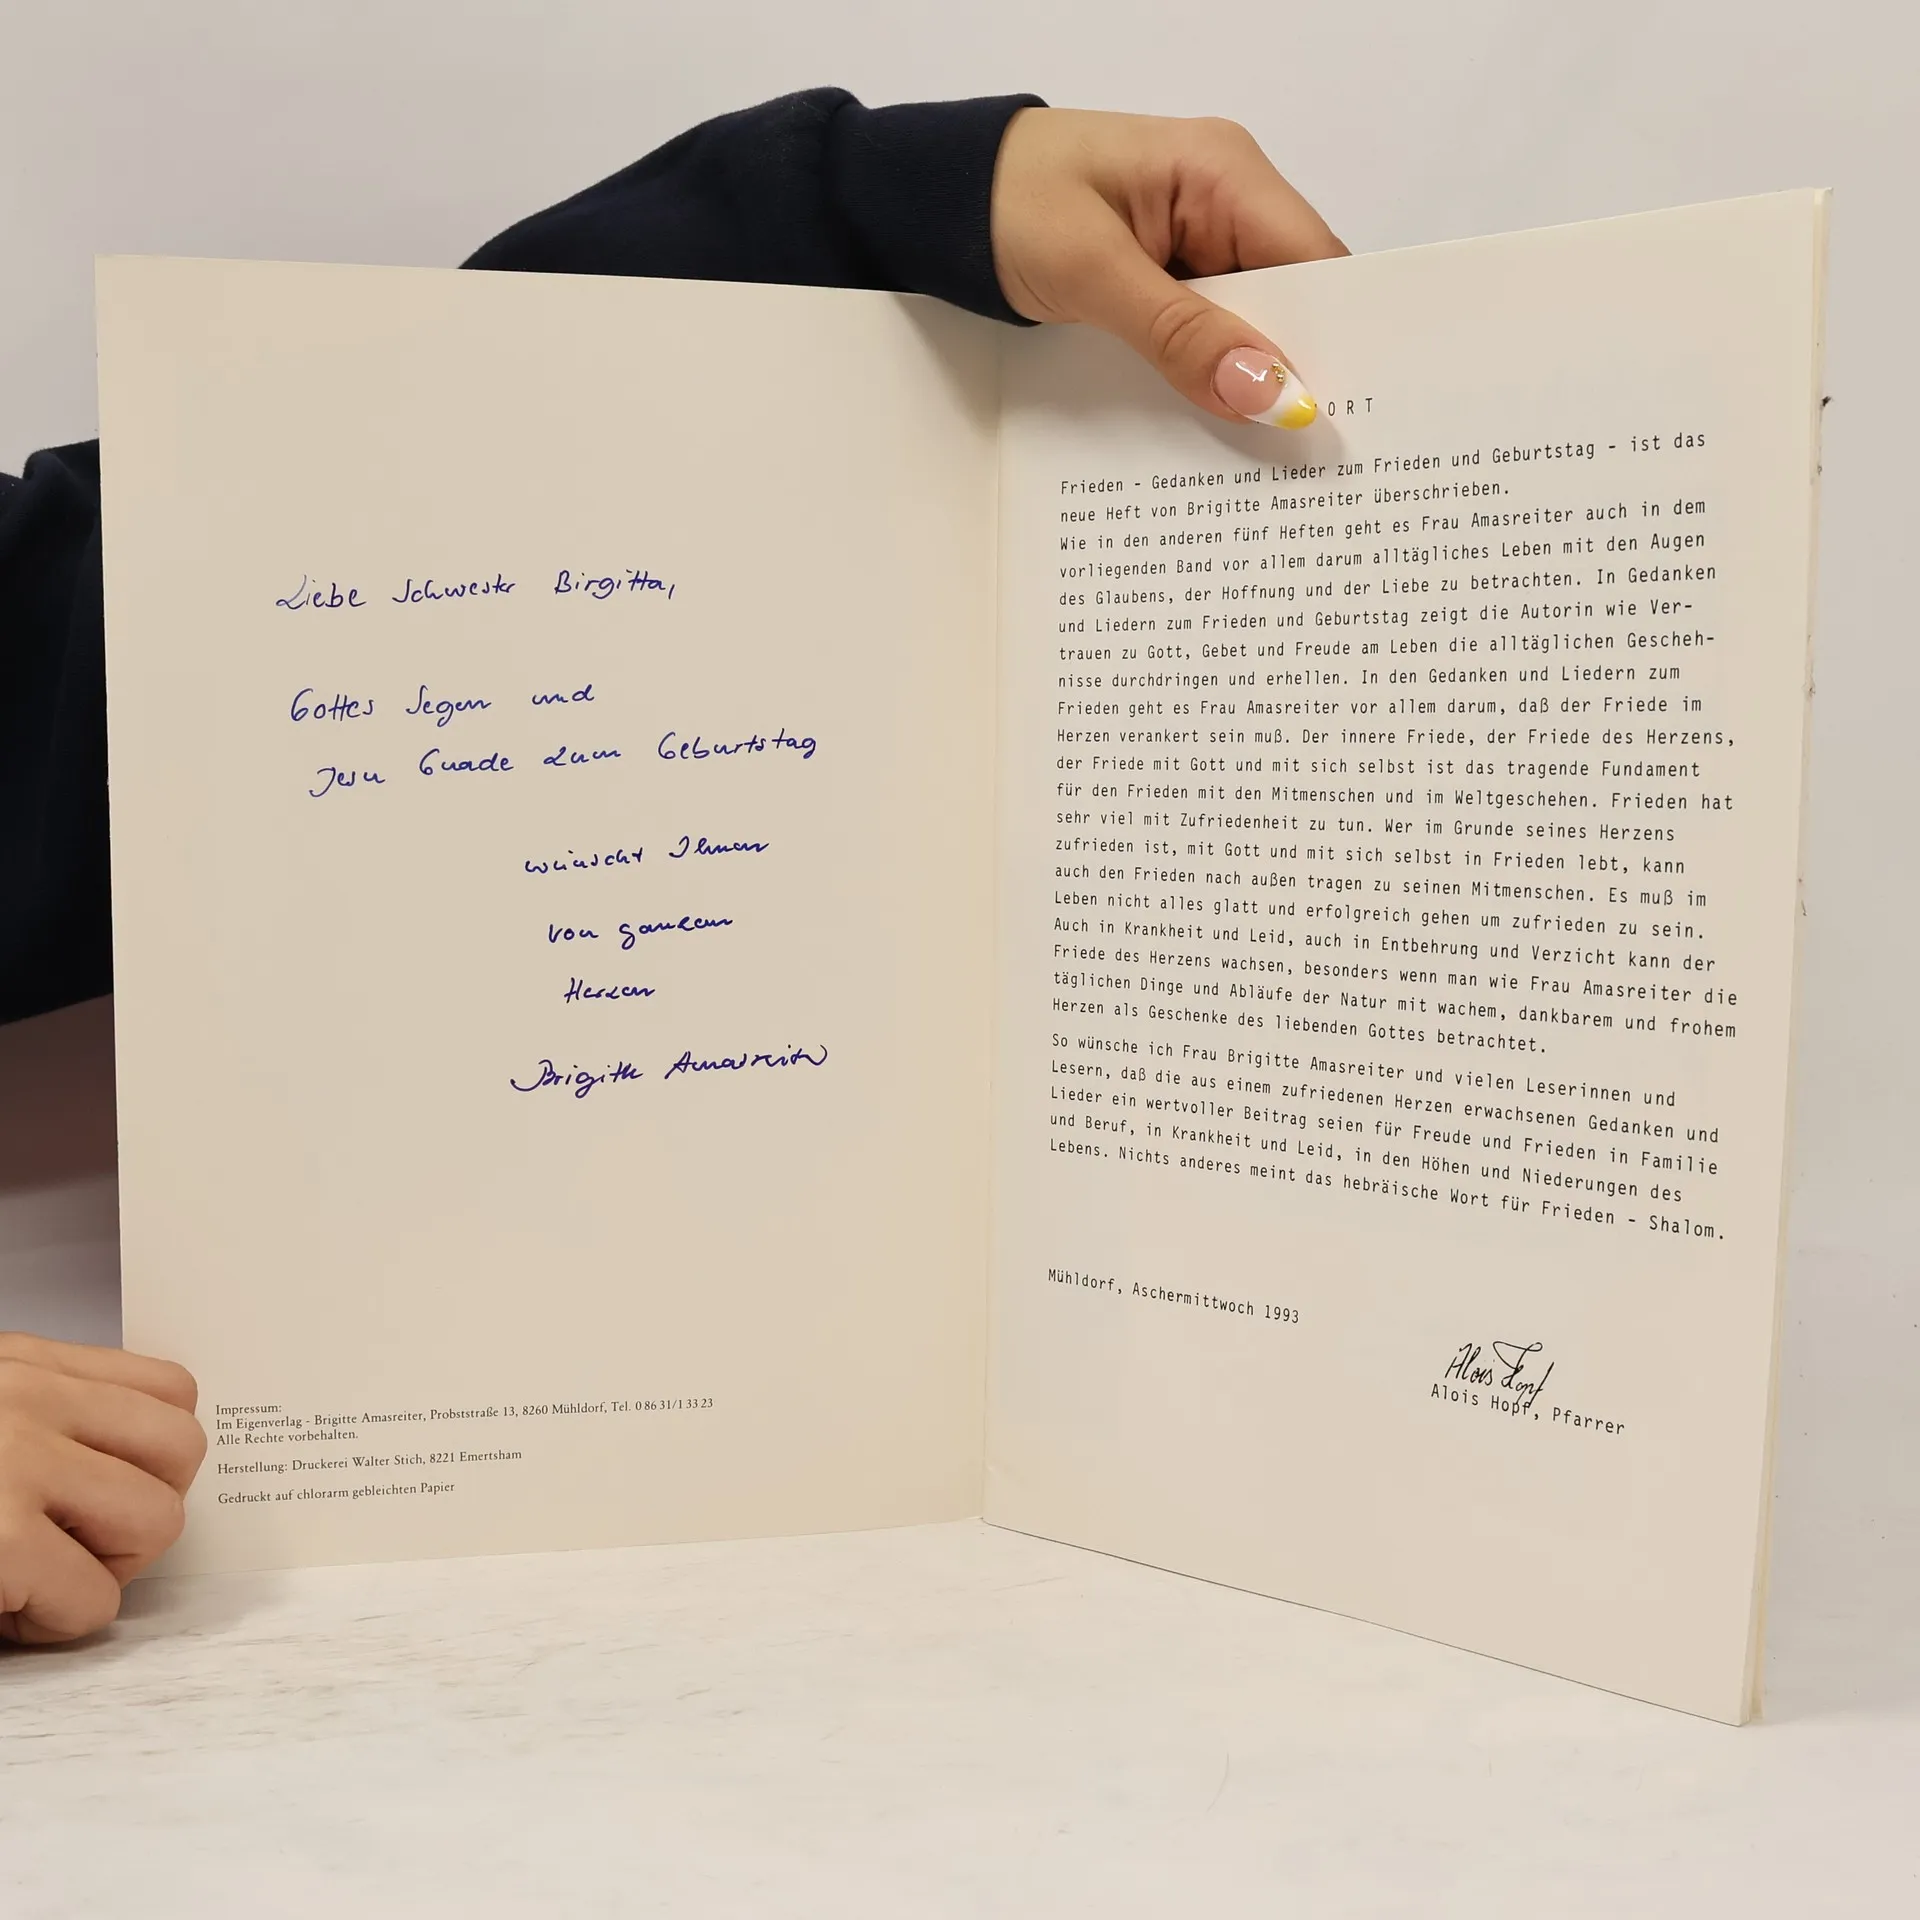 Liebe Schwester Birgitta,
Gottes Segen und
Jesu Gnade zum Geburtstag
wünscht Ihnen
von ganzem
Herzen
Brigitte Amasreiter
Impressum:
Im Eigenverlag - Brigitte Amasreiter, Probststraße 13, 8260 Mühldorf, Tel. 0 86 31/1 33 23
Alle Rechte vorbehalten.
Herstellung: Druckerei Walter Stich, 8221 Emertsham
Gedruckt auf chlorarm gebleichten Papier
ORT
Frieden - Gedanken und Lieder zum Frieden und Geburtstag - ist das
neue Heft von Brigitte Amasreiter überschrieben.
Wie in den anderen fünf Heften geht es Frau Amasreiter auch in dem
vorliegenden Band vor allem darum alltägliches Leben mit den Augen
des Glaubens, der Hoffnung und der Liebe zu betrachten. In Gedanken
und Liedern zum Frieden und Geburtstag zeigt die Autorin wie Ver-
trauen zu Gott, Gebet und Freude am Leben die alltäglichen Gescheh-
nisse durchdringen und erhellen. In den Gedanken und Liedern zum
Frieden geht es Frau Amasreiter vor allem darum, daß der Friede im
Herzen verankert sein muß. Der innere Friede, der Friede des Herzens,
der Friede mit Gott und mit sich selbst ist das tragende Fundament
für den Frieden mit den Mitmenschen und im Weltgeschehen. Frieden hat
sehr viel mit Zufriedenheit zu tun. Wer im Grunde seines Herzens
zufrieden ist, mit Gott und mit sich selbst in Frieden lebt, kann
auch den Frieden nach außen tragen zu seinen Mitmenschen. Es muß im
Leben nicht alles glatt und erfolgreich gehen um zufrieden zu sein.
Auch in Krankheit und Leid, auch in Entbehrung und Verzicht kann der
Friede des Herzens wachsen, besonders wenn man wie Frau Amasreiter die
täglichen Dinge und Abläufe der Natur mit wachem, dankbarem und frohem
Herzen als Geschenke des liebenden Gottes betrachtet.
So wünsche ich Frau Brigitte Amasreiter und vielen Leserinnen und
Lesern, daß die aus einem zufriedenen Herzen erwachsenen Gedanken und
Lieder ein wertvoller Beitrag seien für Freude und Frieden in Familie
und Beruf, in Krankheit und Leid, in den Höhen und Niederungen des
Lebens. Nichts anderes meint das hebräische Wort für Frieden - Shalom.
Mühldorf, Aschermittwoch 1993
Alois Hopf
Alois Hopf, Pfarrer